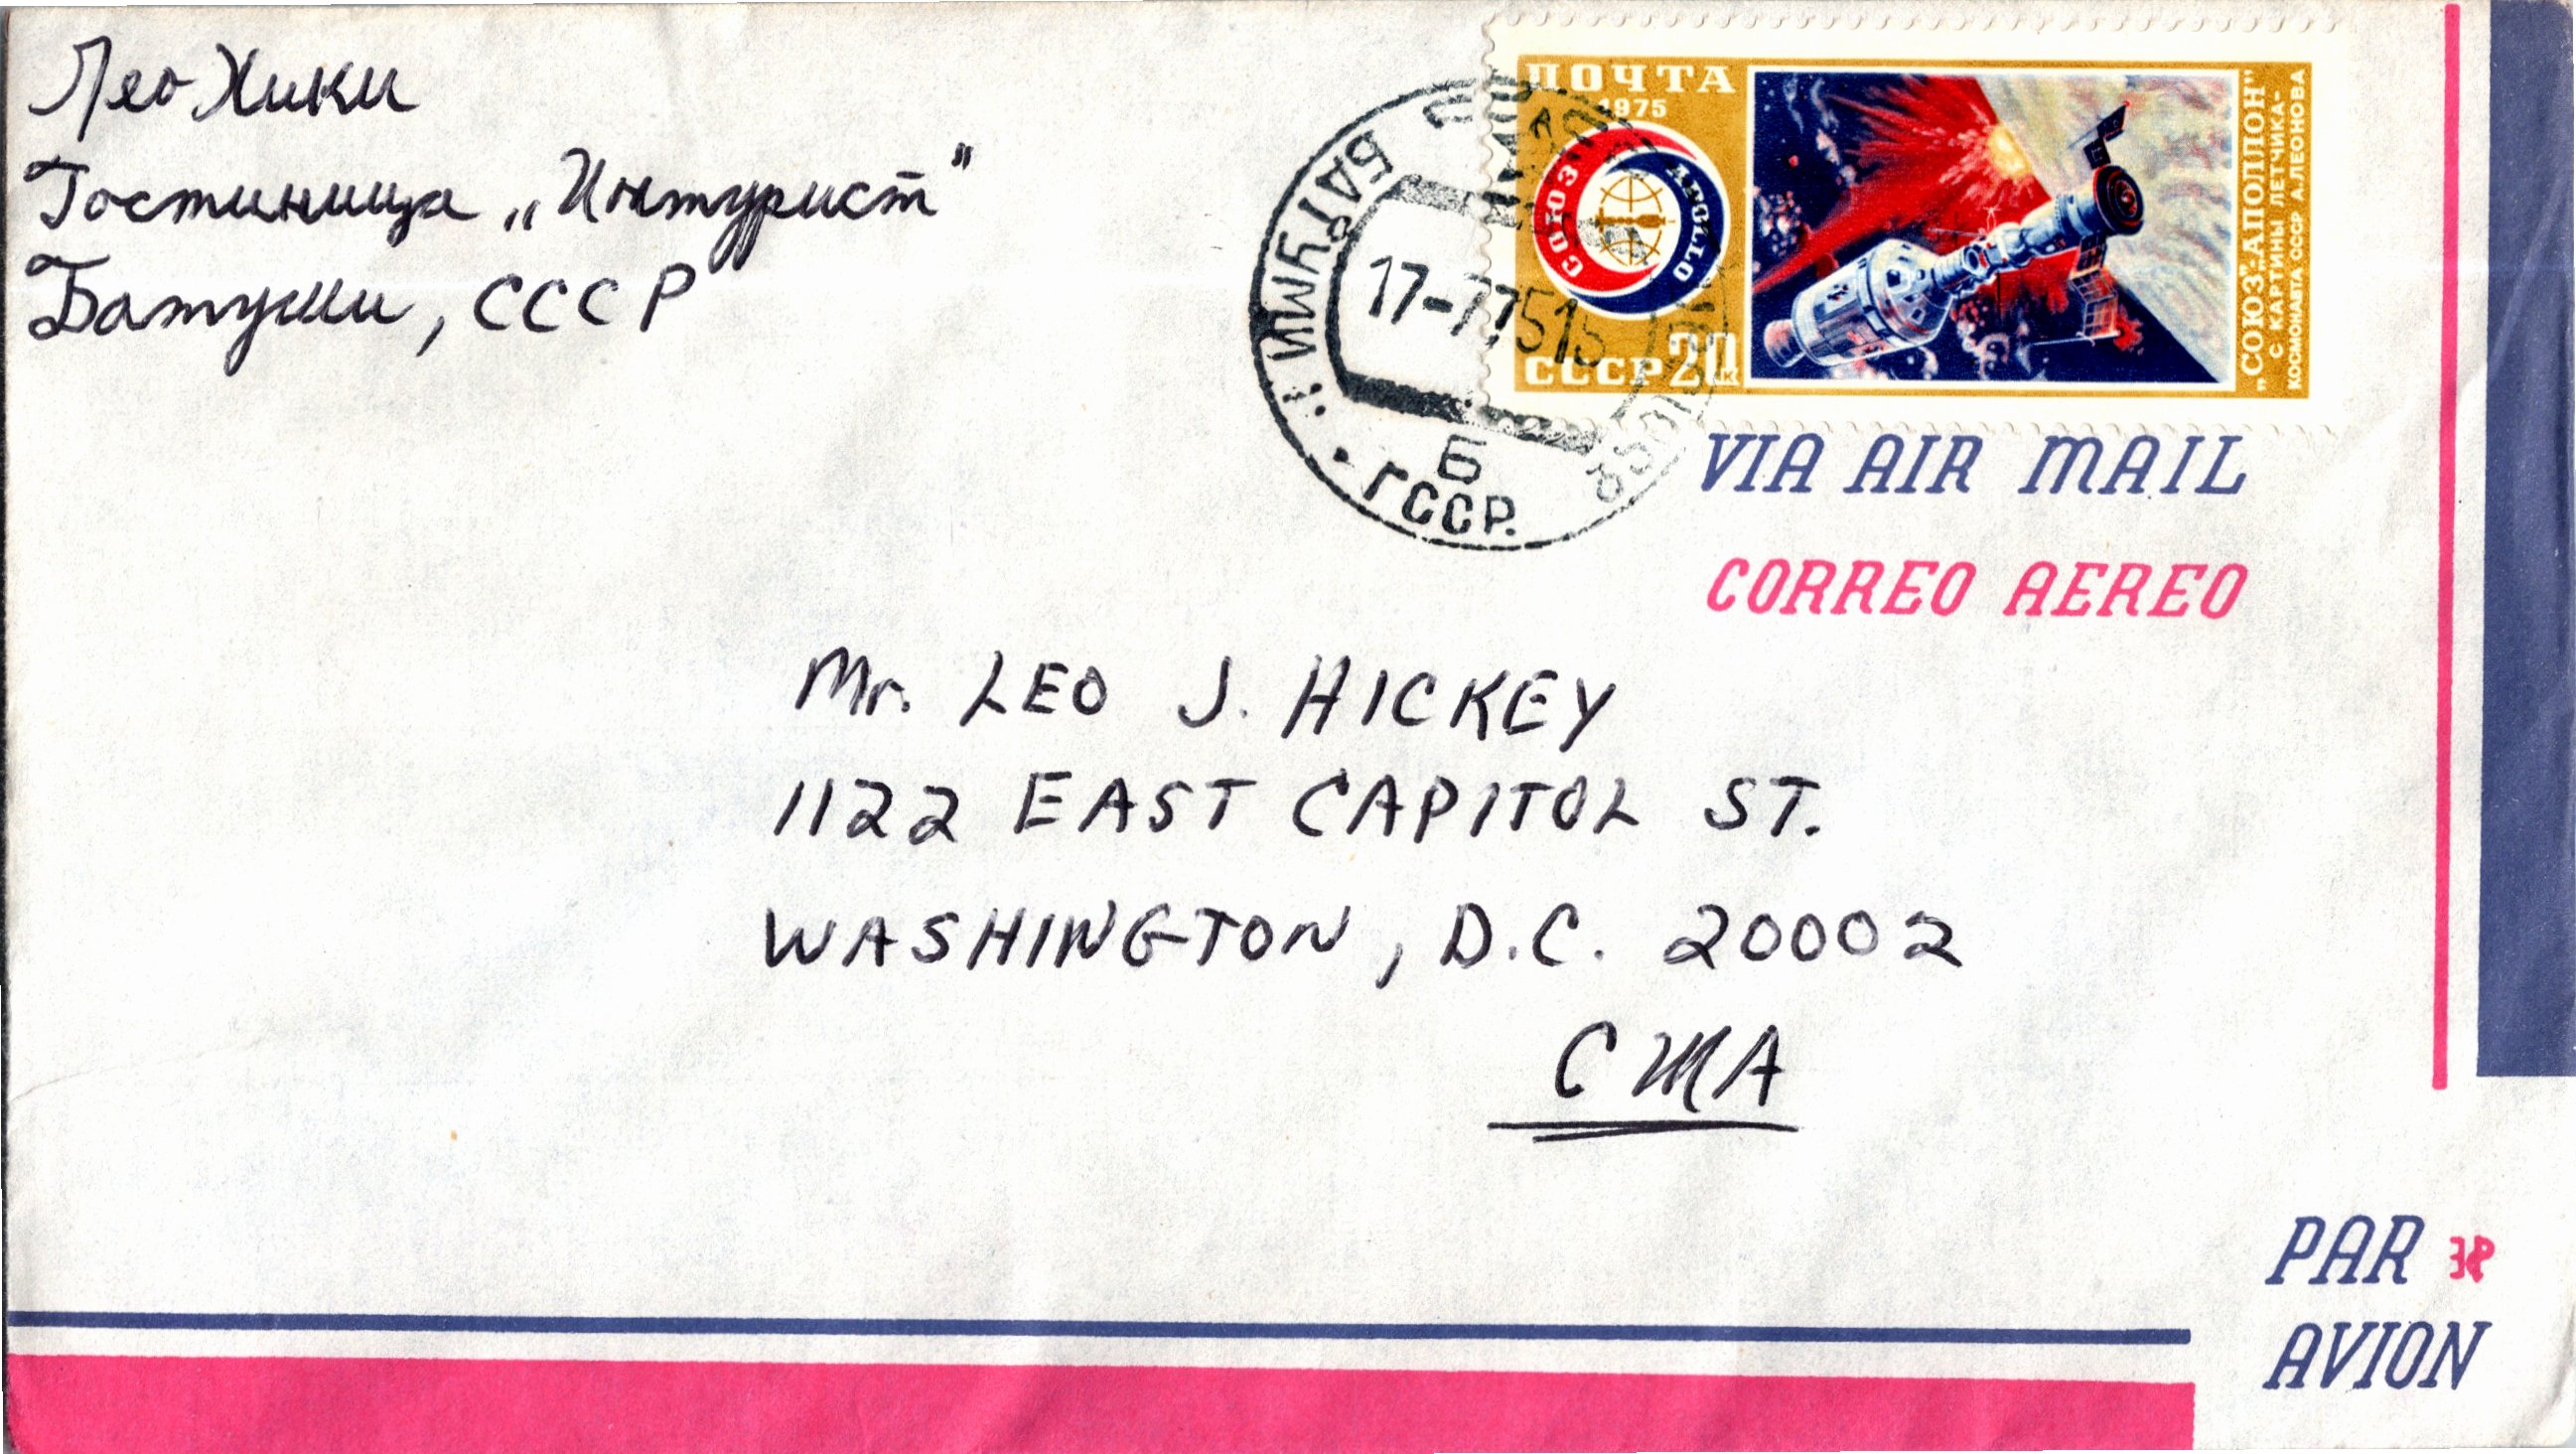 Лео Хики
Гостиница „Интурист"
Батуми, СССР
ПОЧТА
1975
СОЮЗ
APOLLO
СССР 20 к
„СОЮЗ"-„АПОЛЛОН"
С КАРТИНЫ ЛЕТЧИКА-
КОСМОНАВТА СССР А.ЛЕОНОВА
БАТУМИ 1
17-77515
Б
ГССР.
VIA AIR MAIL
CORREO AEREO
Mr. LEO J. HICKEY
1122 EAST CAPITOL ST.
WASHINGTON, D.C. 20002
США
PAR
AVION